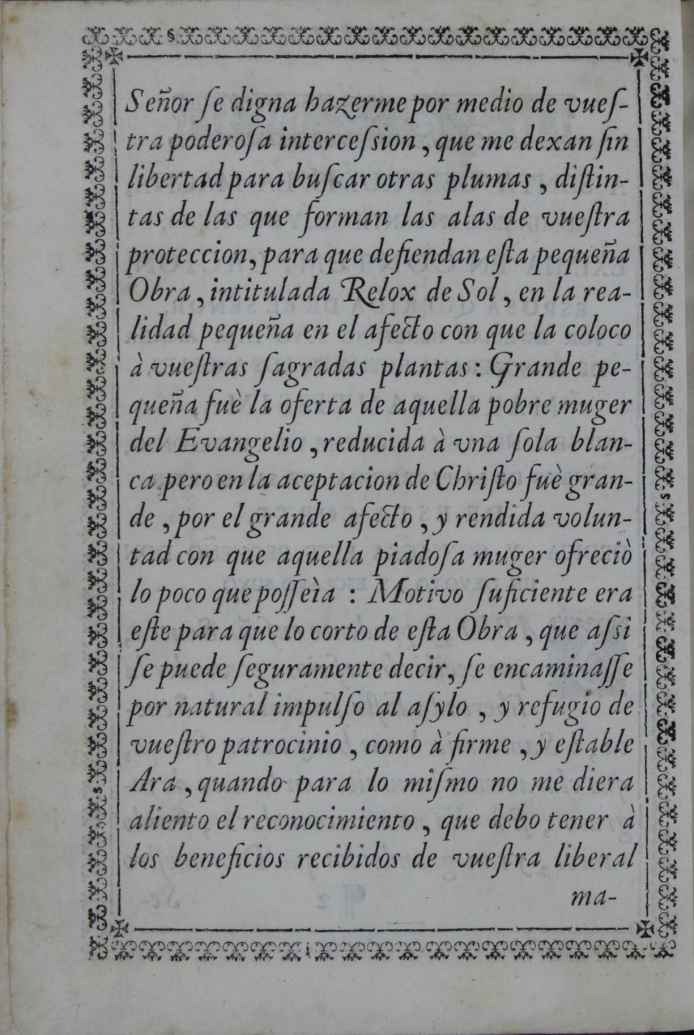 Señor ſe digna hazerme por medio de vueſ-
tra poderoſa interceſsion, que me dexan ſin
libertad para buſcar otras plumas, diſtin-
tas de las que forman las alas de vueſtra
proteccion, para que defiendan eſta pequeña
Obra, intitulada Relox de Sol, en la rea-
lidad pequeña en el afecto con que la coloco
à vueſtras ſagradas plantas: Grande pe-
queña fuè la oferta de aquella pobre muger
del Evangelio, reducida à vna ſola blan-
ca pero en la aceptacion de Chriſto fuè gran-
de, por el grande afecto, y rendida volun-
tad con que aquella piadoſa muger ofreciò
lo poco que poſſeìa: Motivo ſuficiente era
eſte para que lo corto de eſta Obra, que aſsi
ſe puede ſeguramente decir, ſe encaminaſſe
por natural impulſo al aſylo, y refugio de
vueſtro patrocinio, como à firme, y eſtable
Ara, quando para lo miſmo no me diera
aliento el reconocimiento, que debo tener à
los beneficios recibidos de vueſtra liberal
ma-